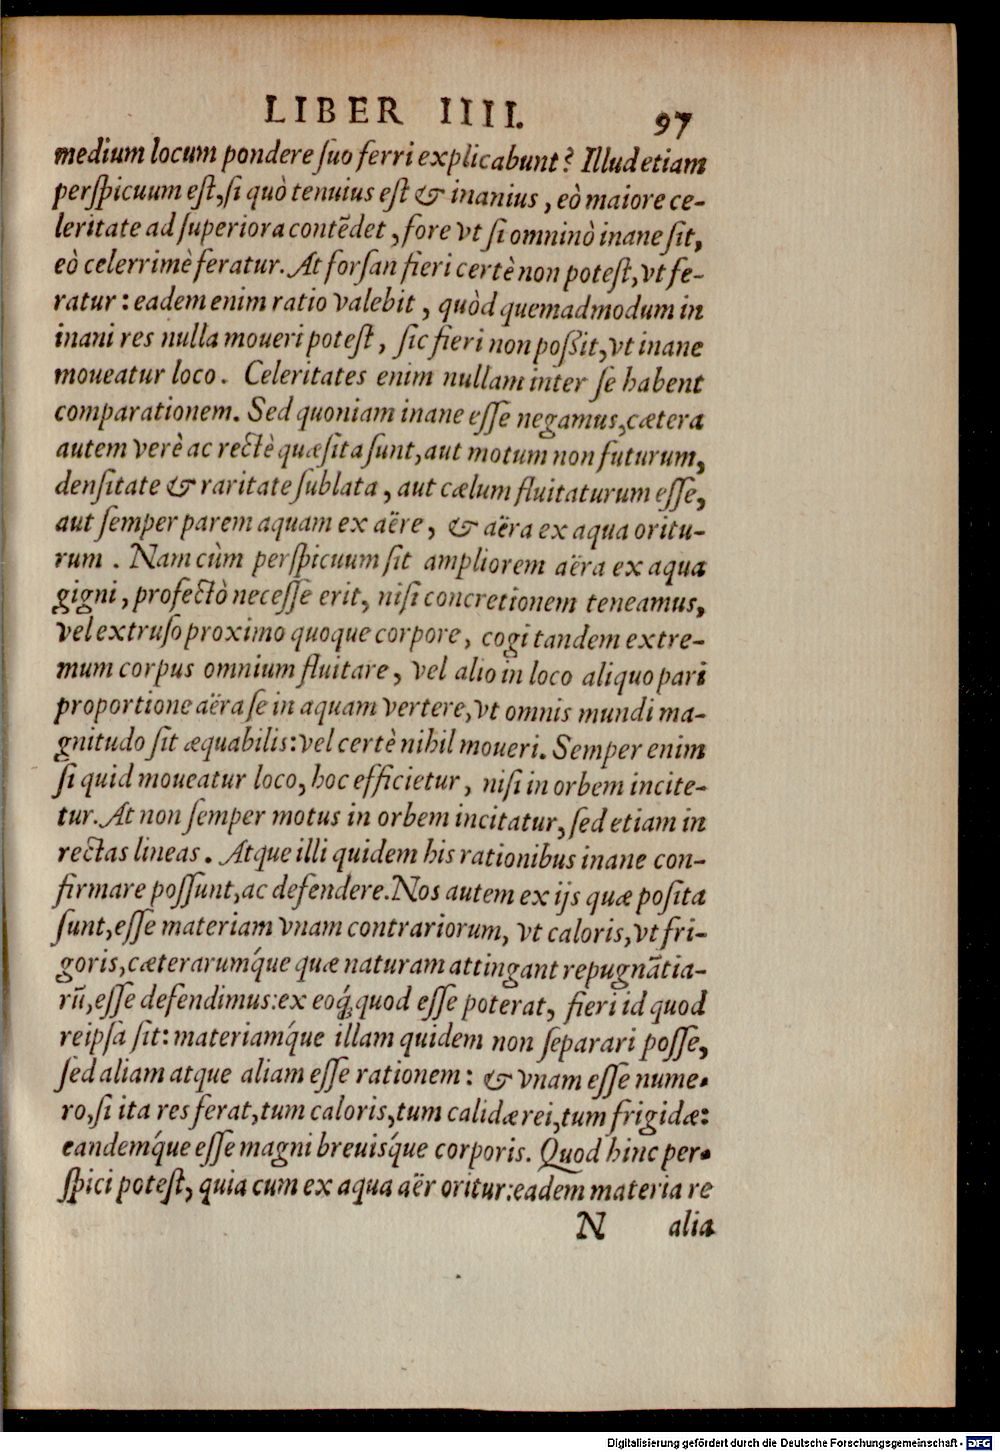 LIBER IIII. 97
medium locum pondere ſuo ferri explicabunt? Illud etiam
perſpicuum eſt, ſi quò tenuius eſt & inanius, eò maiore ce-
leritate ad ſuperiora contẽdet, fore vt ſi omninò inane ſit,
eò celerrimè feratur. At forſan fieri certè non poteſt, vt fe-
ratur: eadem enim ratio valebit, quòd quemadmodum in
inani res nulla moueri poteſt, ſic fieri non poßit, vt inane
moueatur loco. Celeritates enim nullam inter ſe habent
comparationem. Sed quoniam inane eſſe negamus, cætera
autem verè ac rectè quæſita ſunt, aut motum non futurum,
denſitate & raritate ſublata, aut cælum fluitaturum eſſe,
aut ſemper parem aquam ex aëre, & aëra ex aqua oritu-
rum. Nam cùm perſpicuum ſit ampliorem aëra ex aqua
gigni, profectò neceſſe erit, niſi concretionem teneamus,
vel extruſo proximo quoque corpore, cogi tandem extre-
mum corpus omnium fluitare, vel alio in loco aliquo pari
proportione aëra ſe in aquam vertere, vt omnis mundi ma-
gnitudo ſit æquabilis: vel certè nihil moueri. Semper enim
ſi quid moueatur loco, hoc efficietur, niſi in orbem incite-
tur. At non ſemper motus in orbem incitatur, ſed etiam in
rectas lineas. Atque illi quidem his rationibus inane con-
firmare poſſunt, ac defendere. Nos autem ex ijs quæ poſita
ſunt, eſſe materiam vnam contrariorum, vt caloris, vt fri-
goris, cæterarumq́ue quæ naturam attingant repugnãtia-
rũ, eſſe defendimus: ex eoq́; quod eſſe poterat, fieri id quod
reipſa ſit: materiamq́ue illam quidem non ſeparari poſſe,
ſed aliam atque aliam eſſe rationem: & vnam eſſe nume-
ro, ſi ita res ferat, tum caloris, tum calidæ rei, tum frigidæ:
eandemq́ue eſſe magni breuisq́ue corporis. Quod hinc per-
ſpici poteſt, quia cum ex aqua aër oritur: eadem materia re
N alia
Digitalisierung gefördert durch die Deutsche Forschungsgemeinschaft - DFG